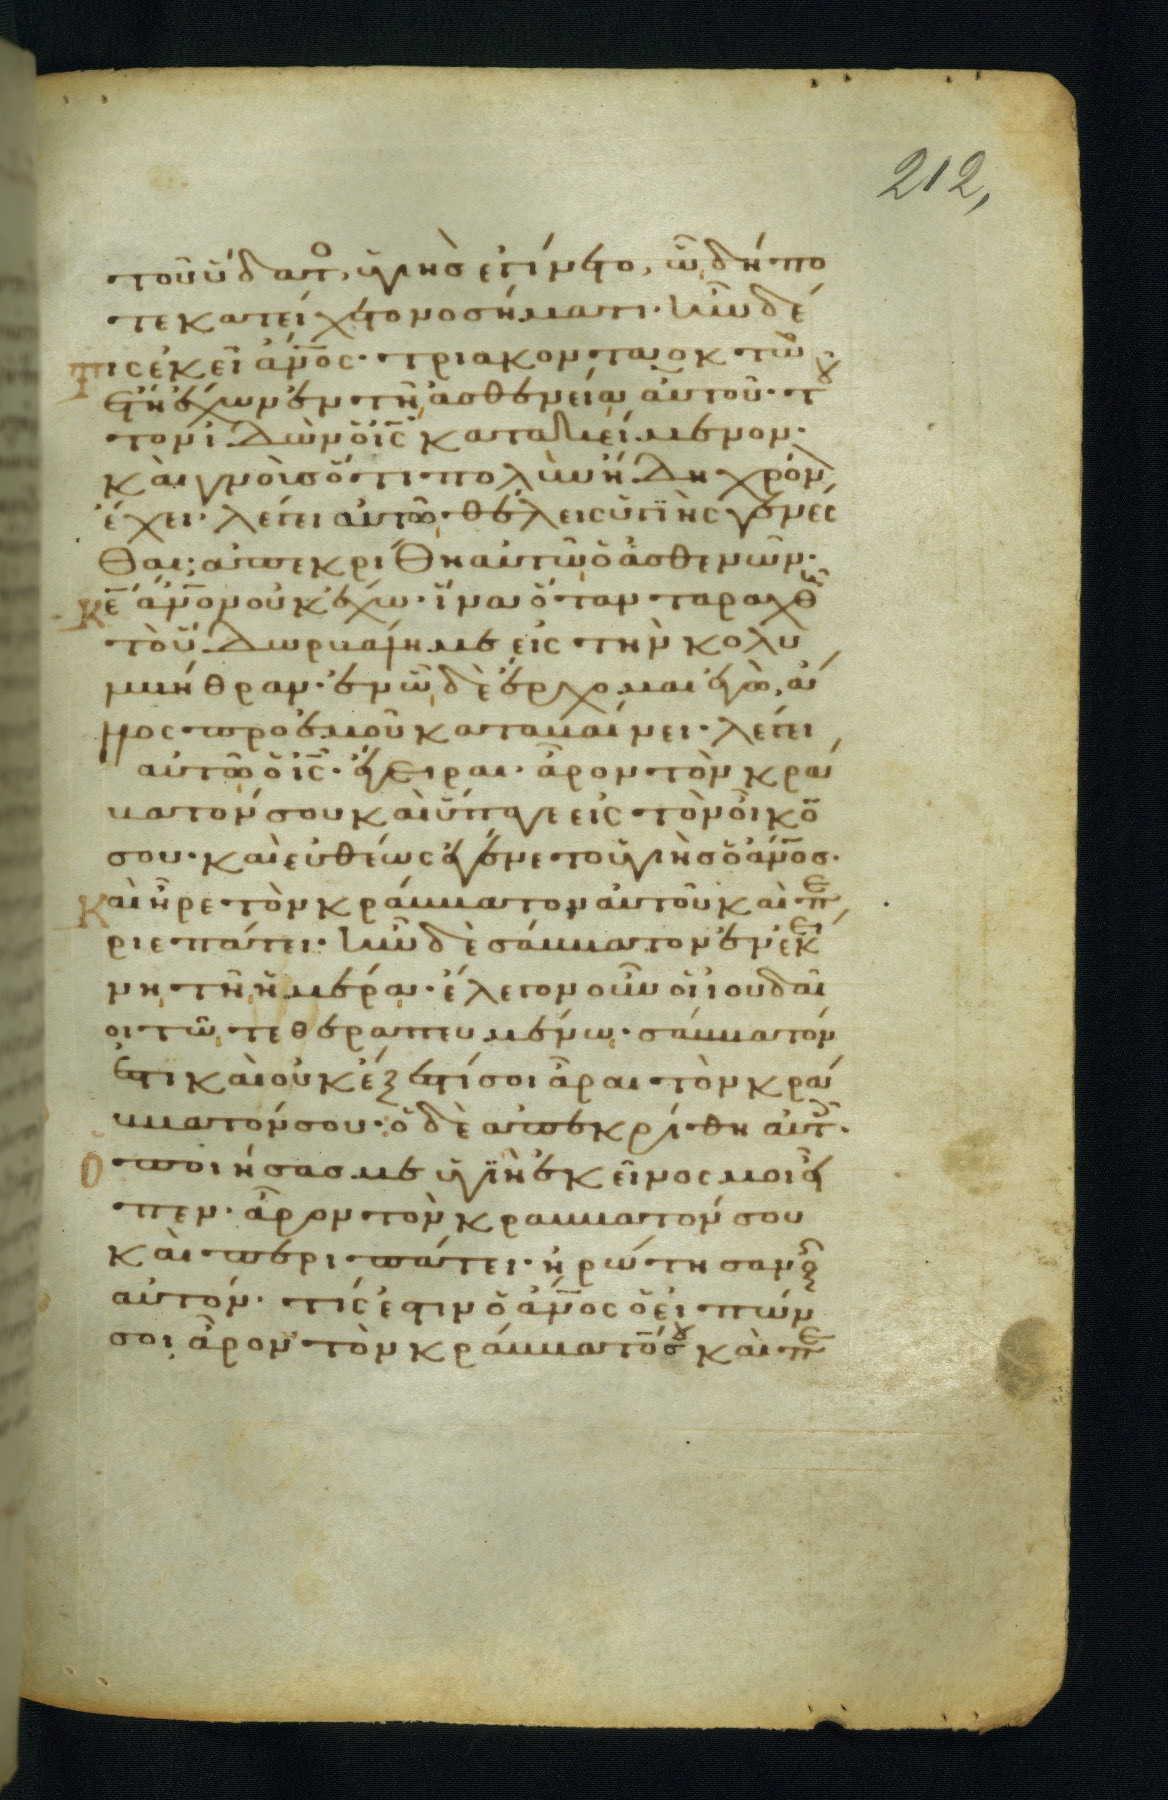 212,
τοῦ ὕδατο, ὑγιὴσ ἐγίνετο, ᾧ δήπο
τε κατείχετο νοσήματι· ἦν δέ
τις ἐκεῖ ἀν̅ος· τριακονταοκτὼ
ἔτη ἔχων ἐν τῇ ἀσθενείᾳ αὐτοῦ· τοῦ
τον ἰδὼν ὁ ις̅ κατακείμενον·
καὶ γνοὺσ ὅτι πολὺν ἤδη χρόν
ἔχει· λέγει αὐτῶ· θέλεις ὑγιὴς γενές
θαι; ἀπεκρίθη αὐτῶ ὁ ἀσθενῶν·
κε̅ ἀν̅ον οὐκ ἔχω· ἵνα ὅταν ταραχθῆ
τὸ ὕδωρ βάλη με εἰς τὴν κολυ
μβήθραν· ἐν ᾧ δὲ ἔρχομαι ἐγὼ, ἄλ
λος προ ἐμοῦ καταβαίνει· λέγει
αὐτῶ ὁ ις̅· ἔγειραι· ἆρον τὸν κρά
βατόν σου καὶ ὕπαγε εἰς τὸν οἶκό
σου· καὶ εὐθέως ἐγένετο ὑγιὴσ ὁ ἀν̅οσ·
Καὶ ἦρε τὸν κράββατον αὐτοῦ καὶ πε
ριεπάτει· ἦν δὲ σάββατον ἐν ἐκεί
νη τῇ ἡμέρα· ἔλεγον οὖν οἱ ἰουδαῖ
οι τῶ τεθεραπευμένω· σάββατόν
ἐστι καὶ οὐκ ἔξεστί σοι ἆραι τὸν κρά
ββατόν σου· ὁ δὲ ἀπεκρίθη αὐτ·
Ὁ ποιήσασ με ὑγιῆ ἐκεῖνος μοι εἶ
πεν· ἆρον τὸν κραββατόν σου
καὶ περιπάτει· ἠρώτησαν οὖν
αὐτόν· τίς ἐστιν ὁ ἀν̅ος ὁ εἰπών
σοι ἆρον τὸν κράββατόν σου καὶ πε